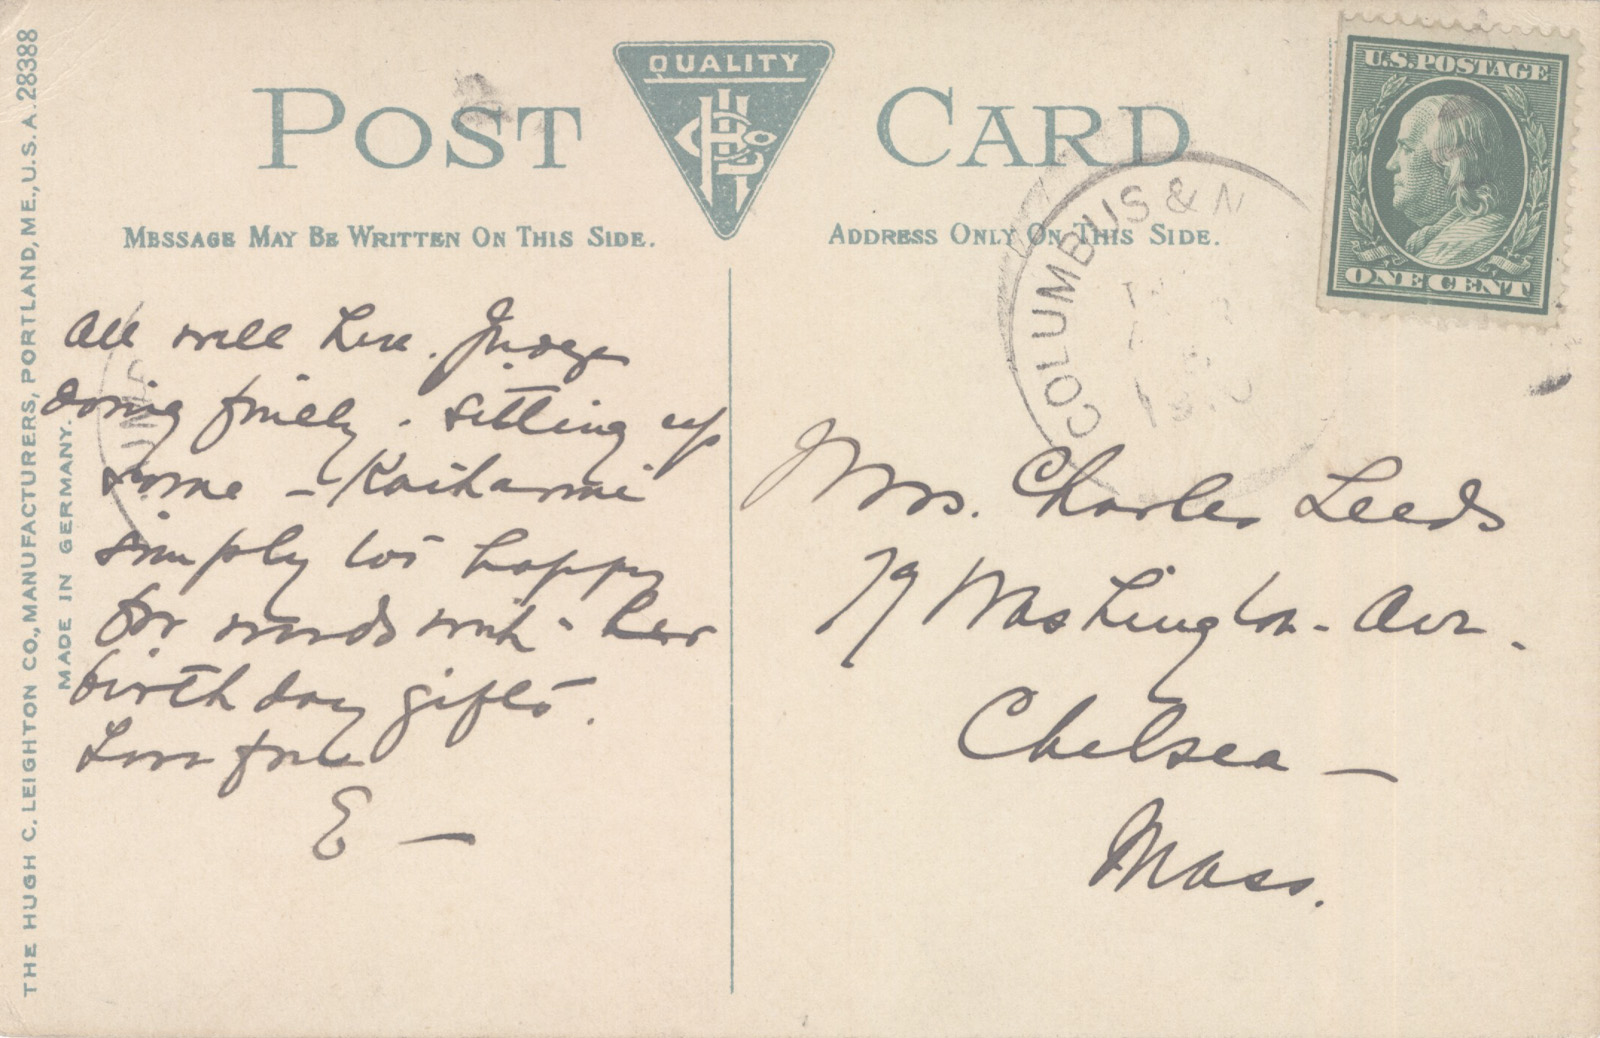 THE HUGH C. LEIGHTON CO., MANUFACTURERS, PORTLAND, ME., U.S.A. 28388
MADE IN GERMANY.
POST CARD
QUALITY
MESSAGE MAY BE WRITTEN ON THIS SIDE.
ADDRESS ONLY ON THIS SIDE.
U.S. POSTAGE
ONE CENT
COLUMBUS & N
All well here. Judge
doing finely. Sitting up
some – Katharine
simply too happy
for words with her
birthday gifts.
Love from
E –
Mrs. Charles Leeds
79 Washington Ave.
Chelsea –
Mass.